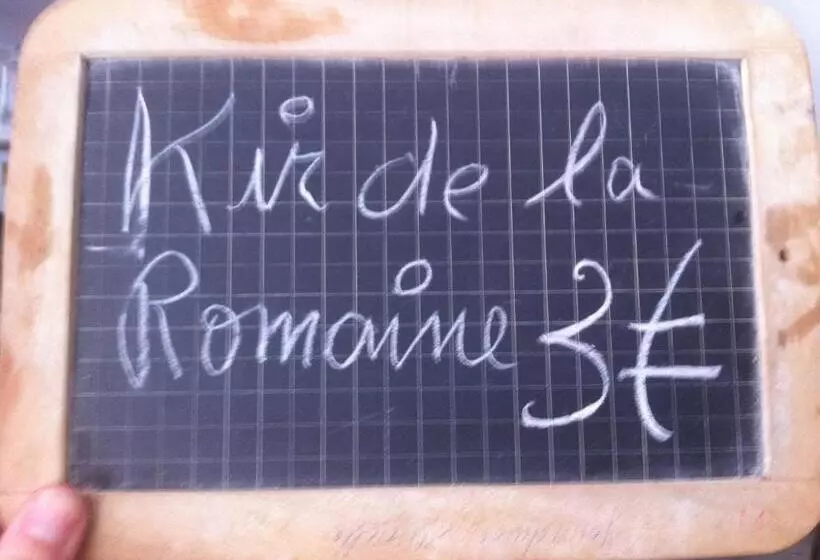 Kir de la
Romaine 3€